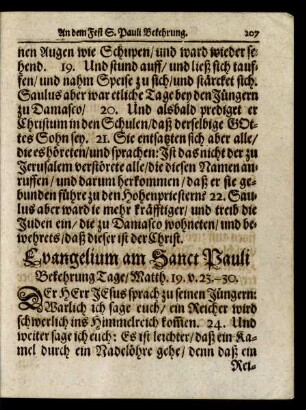 An dem Fest S. Pauli Bekehrung. 207
nen Augen wie Schupen/ und ward wieder se-
hend. 19. Und stund auff/ und ließ sich tauf-
fen/ und nahm Speise zu sich/ und stärcket sich.
Saulus aber war etliche Tage bey den Jüngern
zu Damasco/ 20. Und alsbald prediget er
Christum in den Schulen/ daß derselbige GOt-
tes Sohn sey. 21. Sie entsatzten sich aber alle/
die es höreten/ und sprachen: Ist das nicht der zu
Jerusalem verstörete alle/ die diesen Namen an-
ruffen/ und darum herkommen/ daß er sie ge-
bunden führe zu den Hohenpriestern? 22. Sau-
lus aber ward ie mehr kräfftiger/ und treib die
Juden ein/ die zu Damasco wohneten/ und be-
wehrets/ daß dieser ist der Christ.
Evangelium am Sanct Pauli
Bekehrung Tage/ Matth. 19. v. 23.-30.
DEr HErr JEsus sprach zu seinen Jüngern:
Warlich ich sage euch/ ein Reicher wird
schwerlich ins Himmelreich kom̃en. 24. Und
weiter sage ich euch: Es ist leichter/ daß ein Ka-
mel durch ein Nadelöhre gehe/ denn daß ein
Rei-